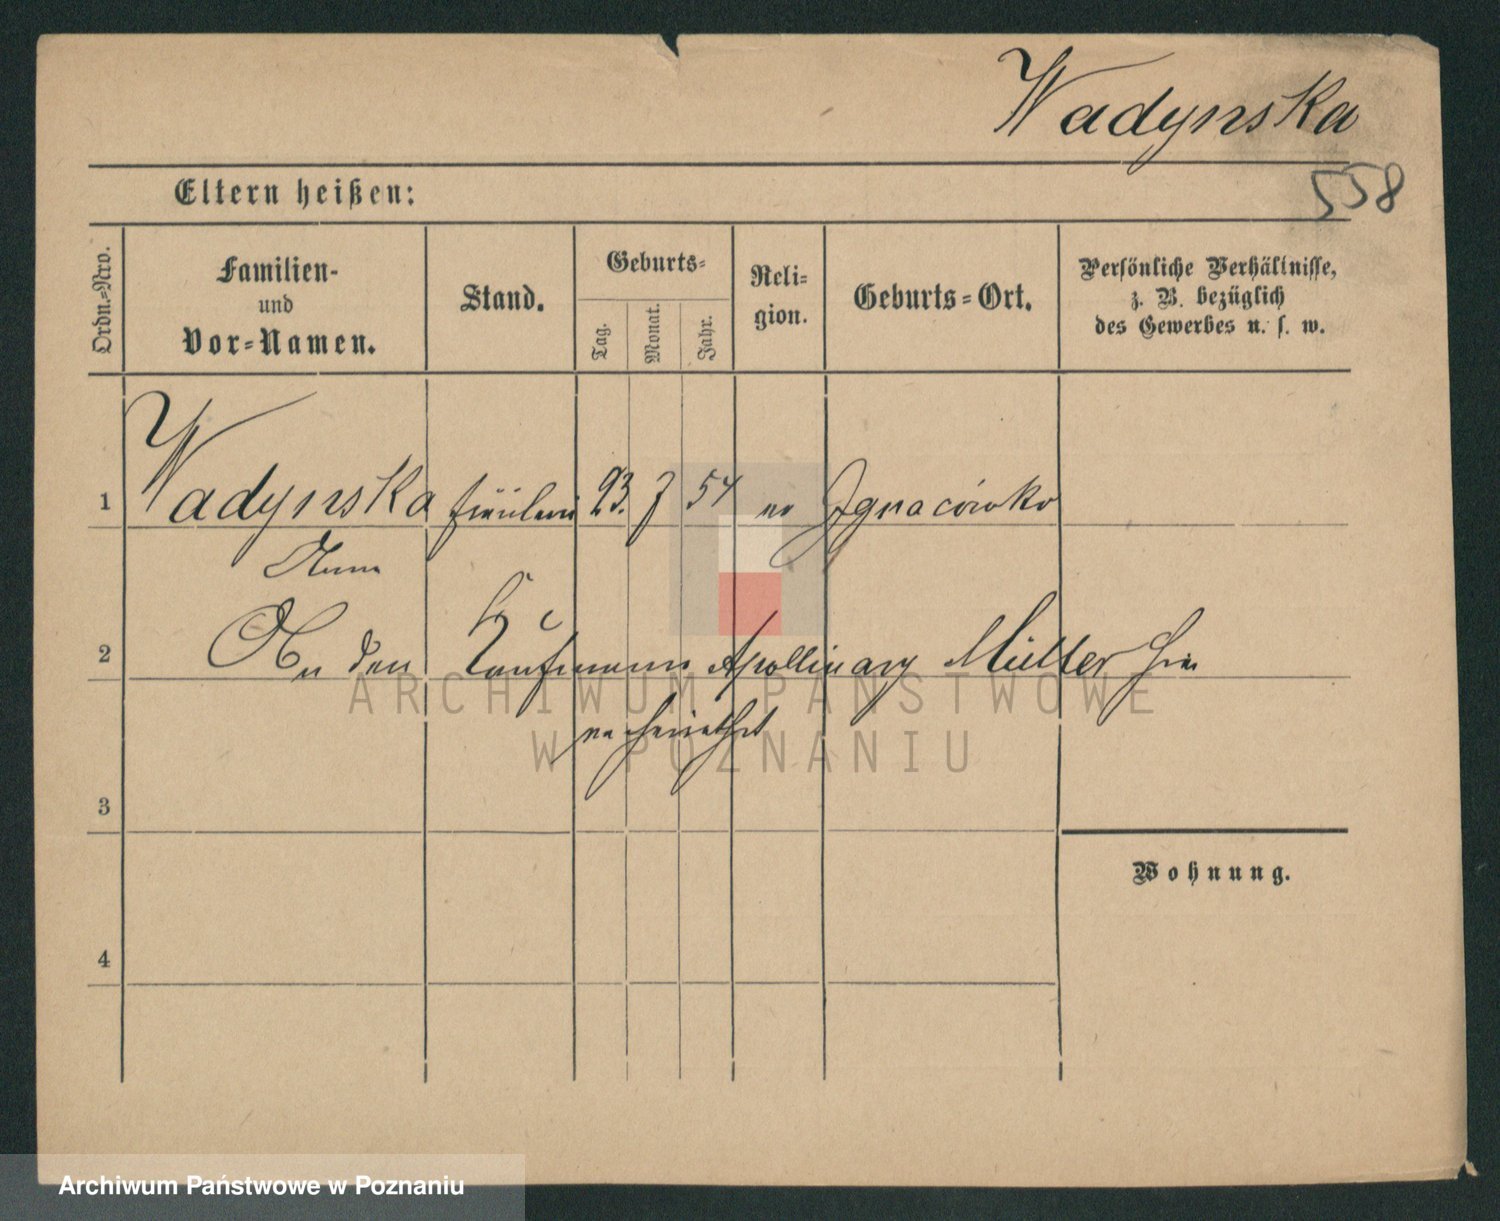 Wadynska
558
Eltern heißen:
Ordn.=Nro.
Familien-
und
Vor=Namen.
Stand.
Geburts=
Tag.
Monat.
Jahr.
Reli=
gion.
Geburts=Ort.
Persönliche Verhältnisse,
z. B. bezüglich
des Gewerbes u. s. w.
1 Wadynska Fräulein 23. 7 54 Ignacówko
Anna
2 An den Kaufmann Apollinary Müller hier
verheirathet
ARCHIWUM PAŃSTWOWE
W POZNANIU
3
Wohnung.
4
Archiwum Państwowe w Poznaniu